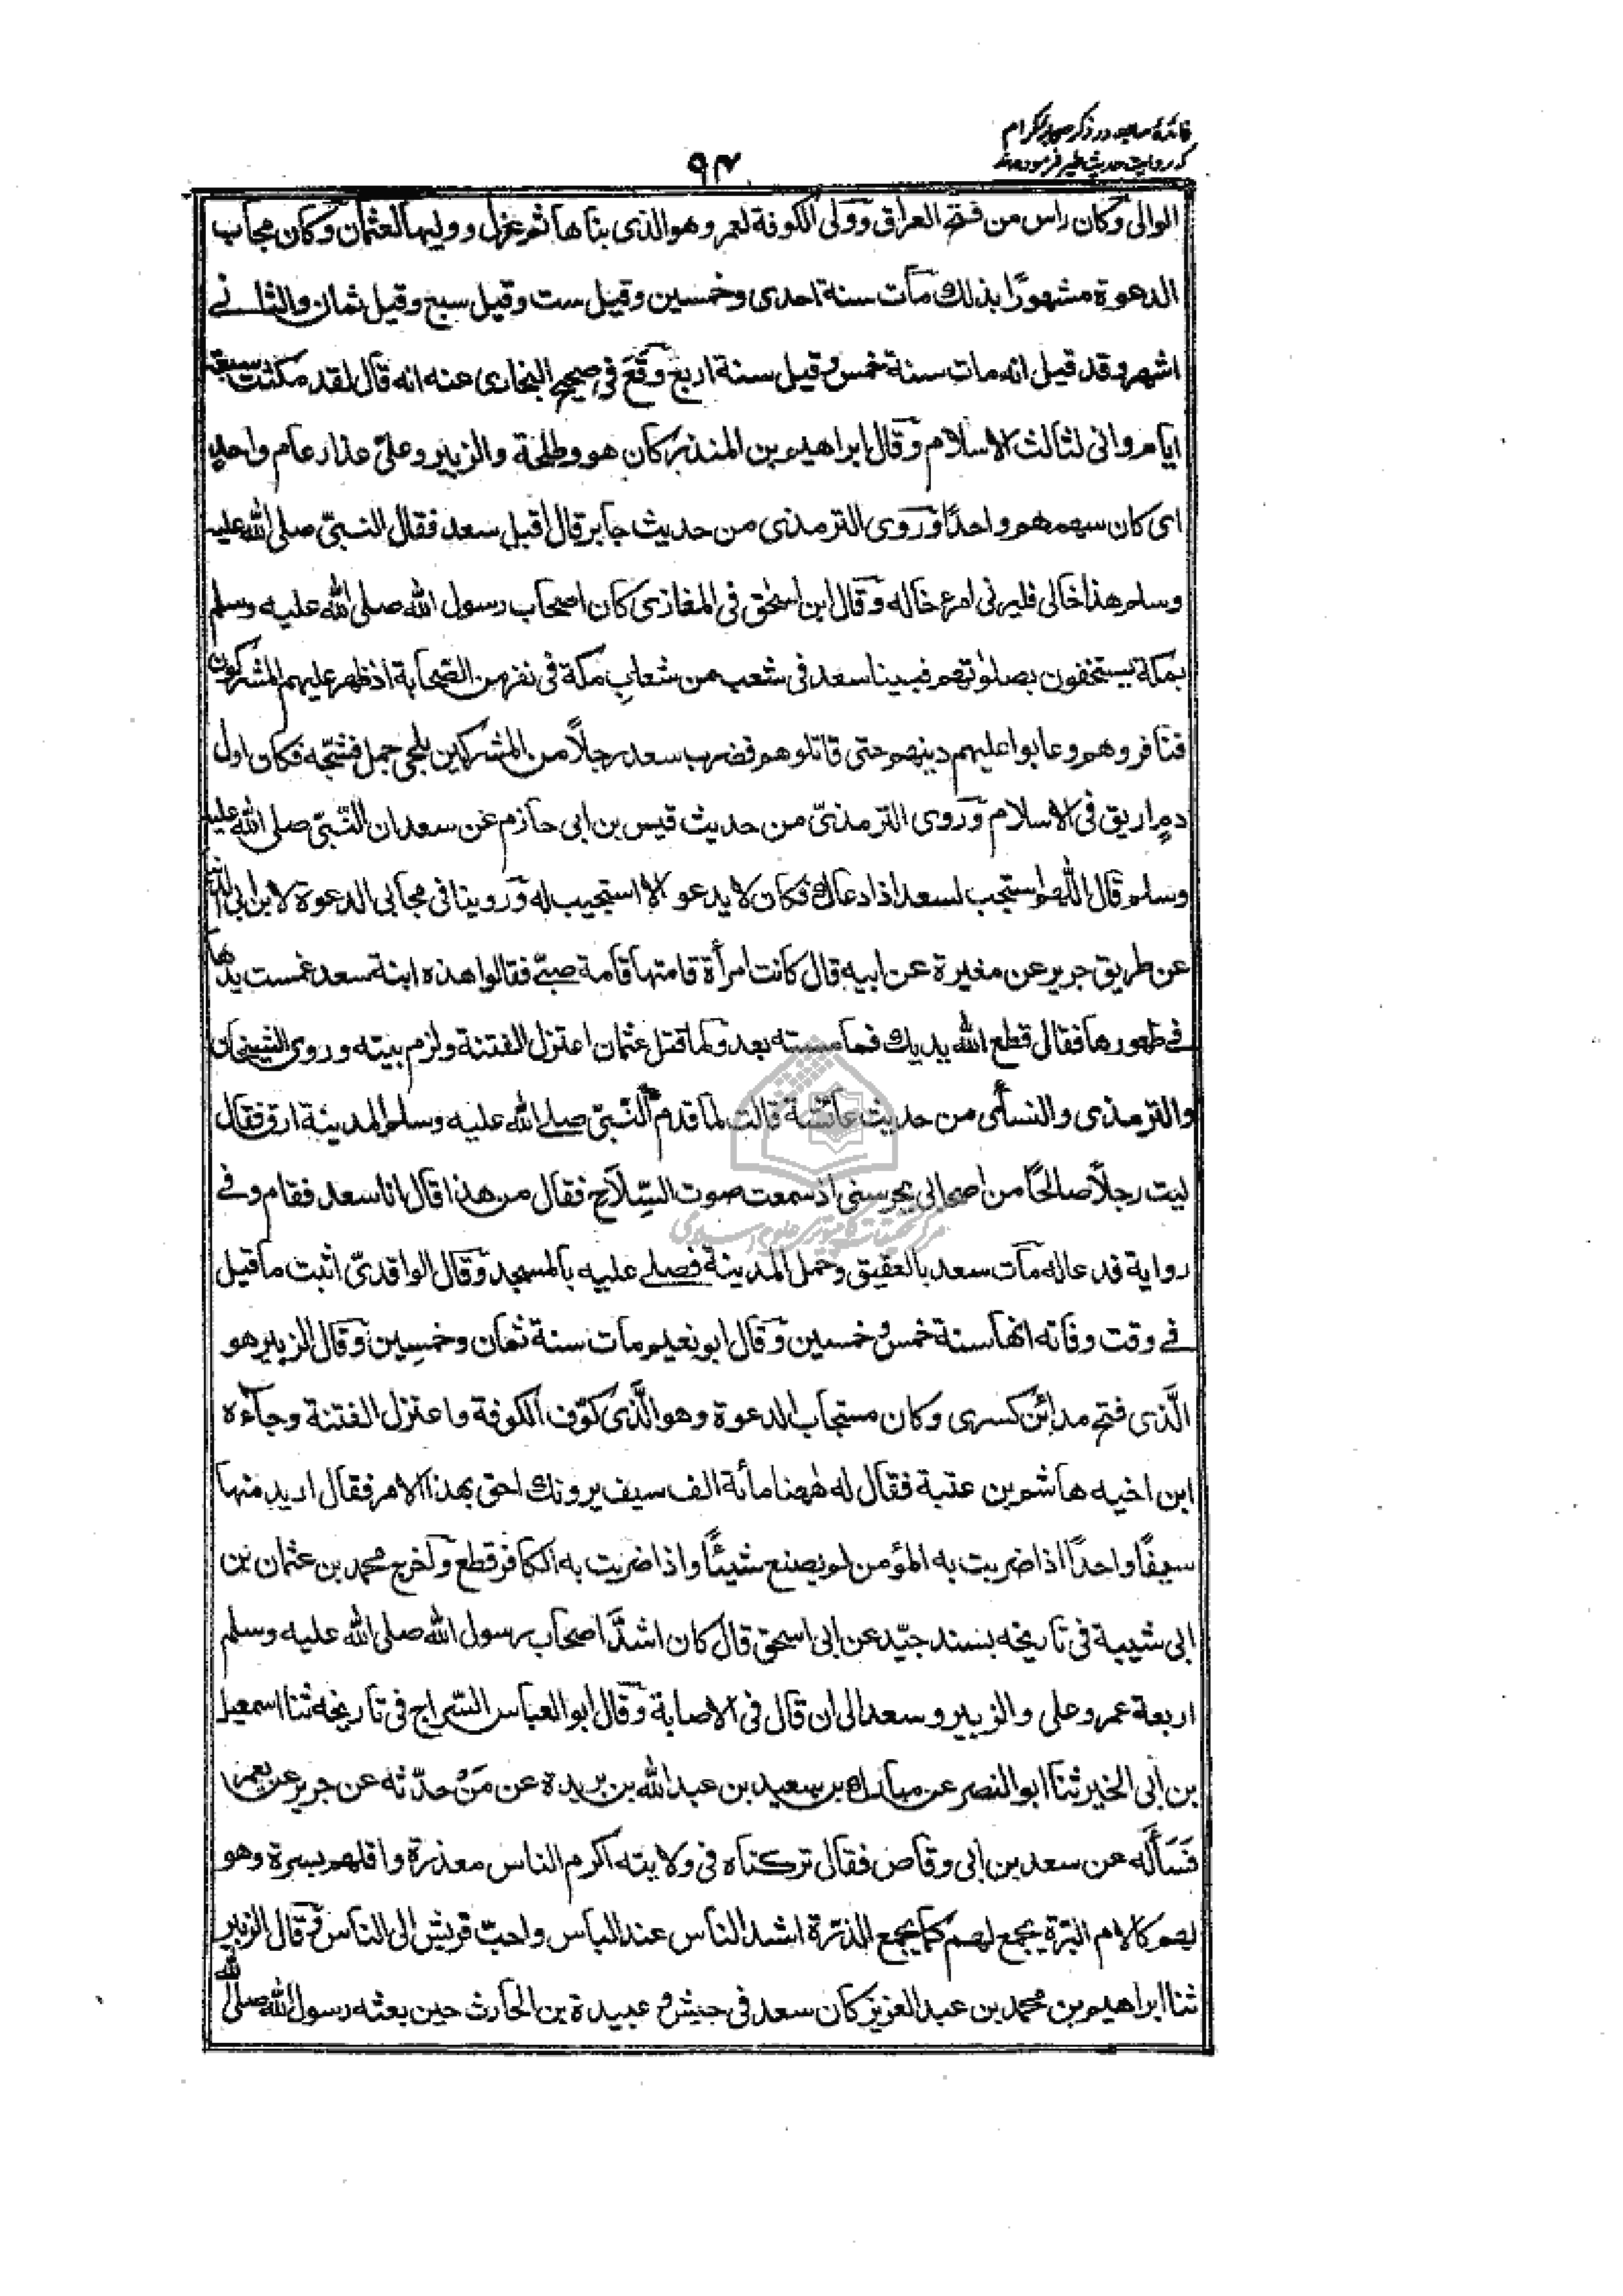 فائدهٔ سابعه در ذکر صحابهٔ کرام
که روایت حدیث طیر فرموده‌اند
۹۴
الوالی وکان راس من فتح العراق وولی الکوفة لعمر وهو الذی بناها ثم عزل ووليها لعثمان وکان مجاب
الدعوة مشهورًا بذلك مات سنة احدی وخمسين وقيل ست وقيل سبع وقيل ثمان والثانے
اشهر وقد قيل انه مات سنة خمس وقيل سنة اربع وقع فی صحيح البخاری عنه انه قال لقد مکثت سبعة
ايام وانی لثالث الاسلام وقال ابراهيم بن المنذر کان هو وطلحة والزبير وعلی عذار عام واحد
ای کان سهمهم واحدًا وروی الترمذی من حديث جابر قال اقبل سعد فقال النبیّ صلی الله عليه
وسلم هذا خالی فليرنی امرء خاله وقال ابن اسحق فی المغازی کان اصحاب رسول الله صلی الله عليه وسلم
بمکة يستخفون بصلوتهم فبينا سعد فی شعب من شعاب مکة فی نفر من الصحابة اذ ظهر عليهم المشرکون
فنافروهم وعابوا عليهم دينهم حتی قاتلوهم فضرب سعد رجلاً من المشرکين بلحی جمل فشجّه فکان اول
دم اريق فی الاسلام وروی الترمذیّ من حديث قيس بن ابی حازم عن سعد ان النّبیّ صلی الله عليه
وسلم قال اللهم استجب لسعد اذا دعاك فکان لا يدعو الا استجيب له وروينا فی مجابی الدعوة لابن ابی الدنيا
عن طريق جرير عن مغيرة عن ابيه قال کانت امرأة قامتها قامة صبیّ فقالوا هذه ابنة سعد غمست يدها
فے طهورها فقال قطع الله يديك فما مسته بعد ولما قتل عثمان اعتزل الفتنة ولزم بيته وروی الشيخان
والترمذی والنسائی من حديث عائشة قالت لما قدم النّبیّ صلے الله عليه وسلم المدينة ارق فقال
ليت رجلاً صالحًا من اصحابی يحرسنی اذ سمعت صوت السّلاح فقال من هذا قال انا سعد فقام وفے
رواية فدعا له مات سعد بالعقيق وحمل المدينة فصلے عليه بالمسجد وقال الواقدیّ اثبت ما قيل
فے وقت وفاته انها سنة خمس وخمسين وقال ابو نعيم مات سنة ثمان وخمسين وقال الزبير هو
الّذی فتح مدائن کسری وکان مستجاب الدعوة وهو الّذی کوّف الکوفة واعتزل الفتنة وجآءه
ابن اخيه هاشم بن عتبة فقال له هٰهنا مائة الف سيف يرونك احق بهذا الامر فقال اريد منها
سيفًا واحدًا اذا ضربت به المؤمن لم يصنع شيئًا واذا ضربت به الکافر قطع واخرج محمد بن عثمان بن
ابی شيبة فی تاريخه بسند جيّد عن ابی اسحق قال کان اشدّ اصحاب رسول الله صلی الله عليه وسلم
اربعة عمر وعلی والزبير وسعد الی ان قال فی الاصابة وقال ابو العباس السّراج فی تاريخه ثنا اسمعيل
بن ابی الخير ثنا ابو النصر عن مبارك بن سعيد بن عبد الله بن بريدة عن مَن حدّثه عن جرير عن
فَسَأَله عن سعد بن ابی وقاص فقال ترکناه فی ولايته اکرم الناس معذرة واقلهم بسرة وهو
لهم کالام البرّة يجمع لهم کما يجمع الذرّة اشد الناس عند الباس واحبّ قريش الی الناس وقال الزبير
ثنا ابراهيم بن محمد بن عبد العزيز کان سعد فی جيش عبيدة بن الحارث حين بعثه رسول الله صلی الله
مرکز تحقیقات کامپیوتری علوم اسلامی